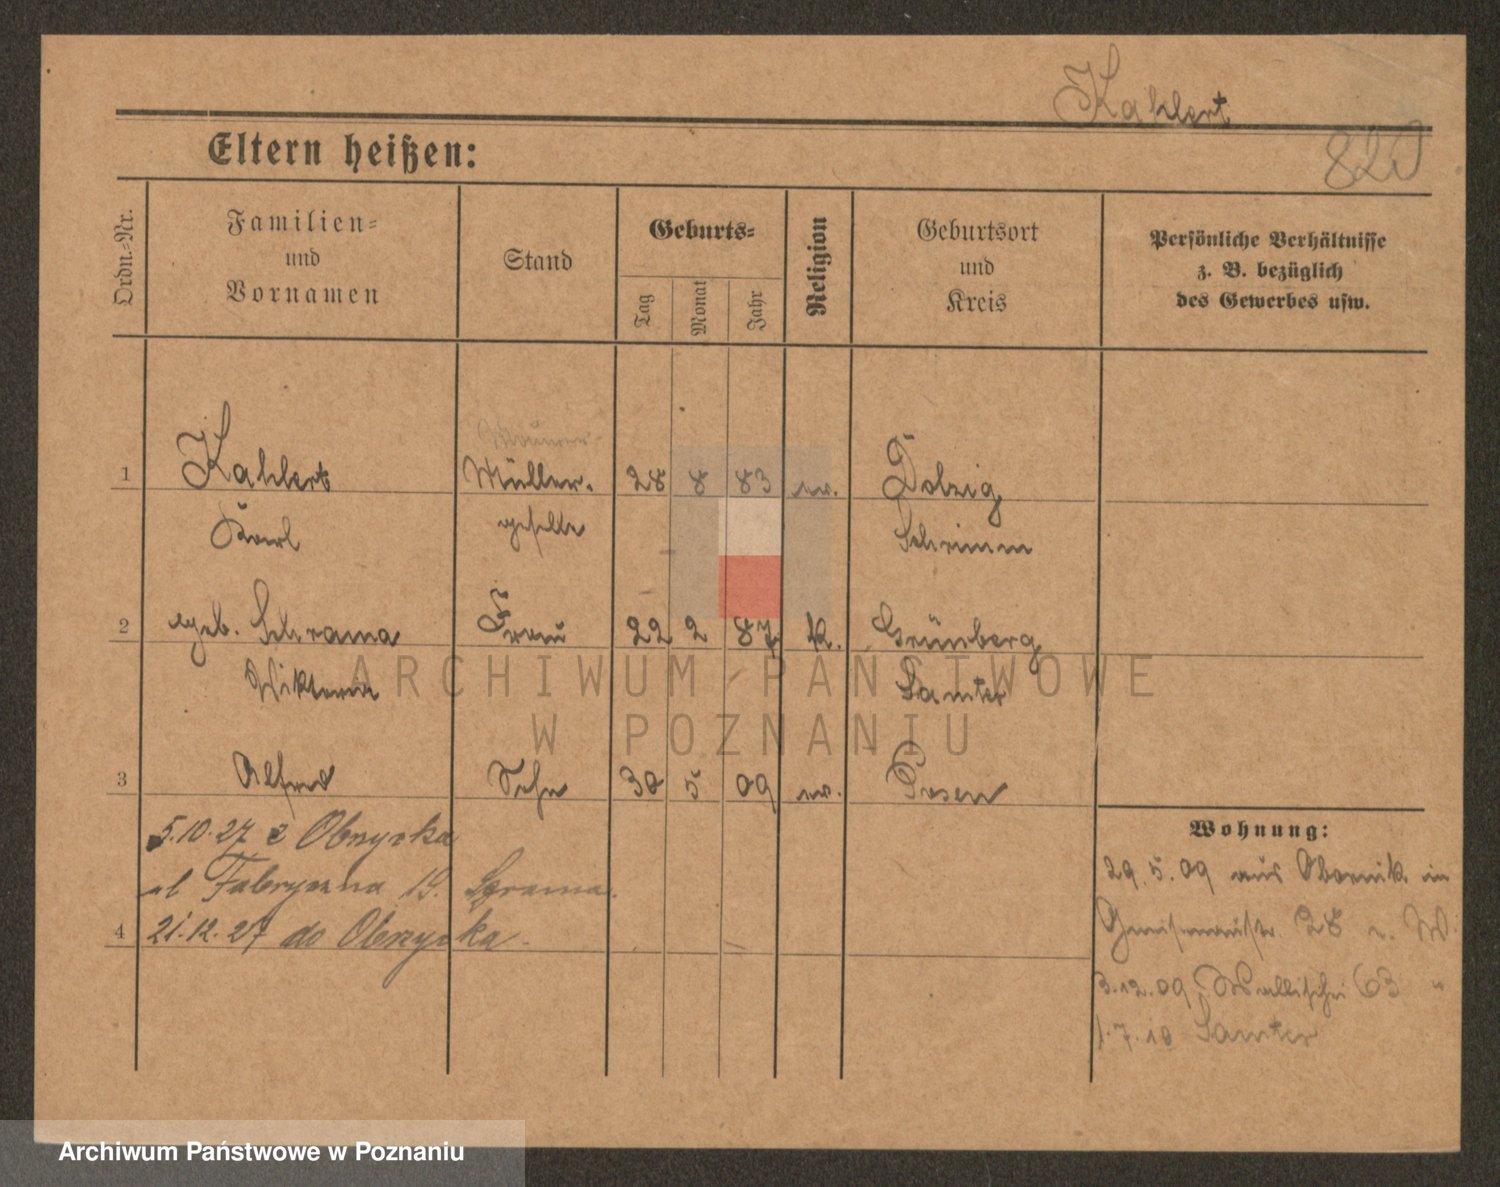 Kahlert
820
Eltern heißen:
Ordn.-Nr.
Familien-
und
Vornamen
Stand
Geburts-
Tag
Monat
Jahr
Religion
Geburtsort
und
Kreis
Persönliche Verhältnisse
z. B. bezüglich
des Gewerbes usw.
1 Kahlert Müller- 28 8 83 ev. Dolzig
Karl geselle Schrimm
2 geb. Schrama Frau 22 2 87 k. Grünberg
Wiktoria Samter
3 Alfred Sohn 30 5 09 ev. Posen
5.10.27 z Obrzycka
ul Fabryczna 19. Szrama.
4 21.12.27 do Obrzycka
Wohnung:
29.5.09 aus Obornik in
Gneisenaustr 28
3.12.09 Wallischei 63 "
1.7.10 Samter
ARCHIWUM PAŃSTWOWE
W POZNANIU
Archiwum Państwowe w Poznaniu